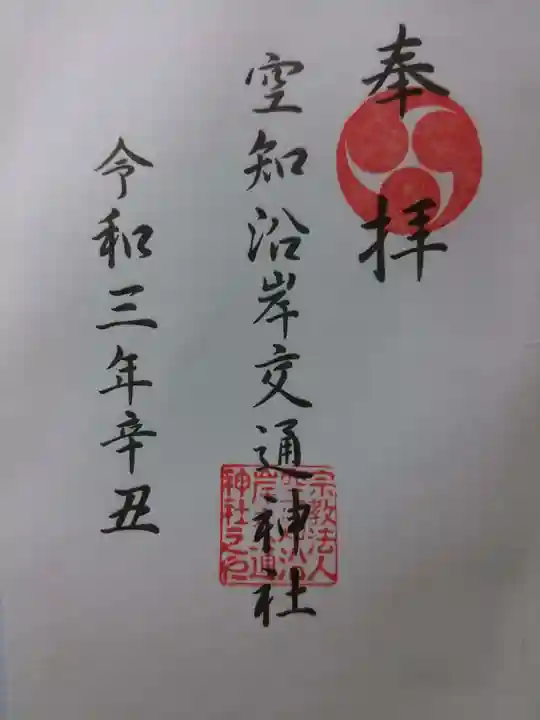 奉拝
空知沿岸交通神社
宗教法人
神社之印
令和三年辛丑